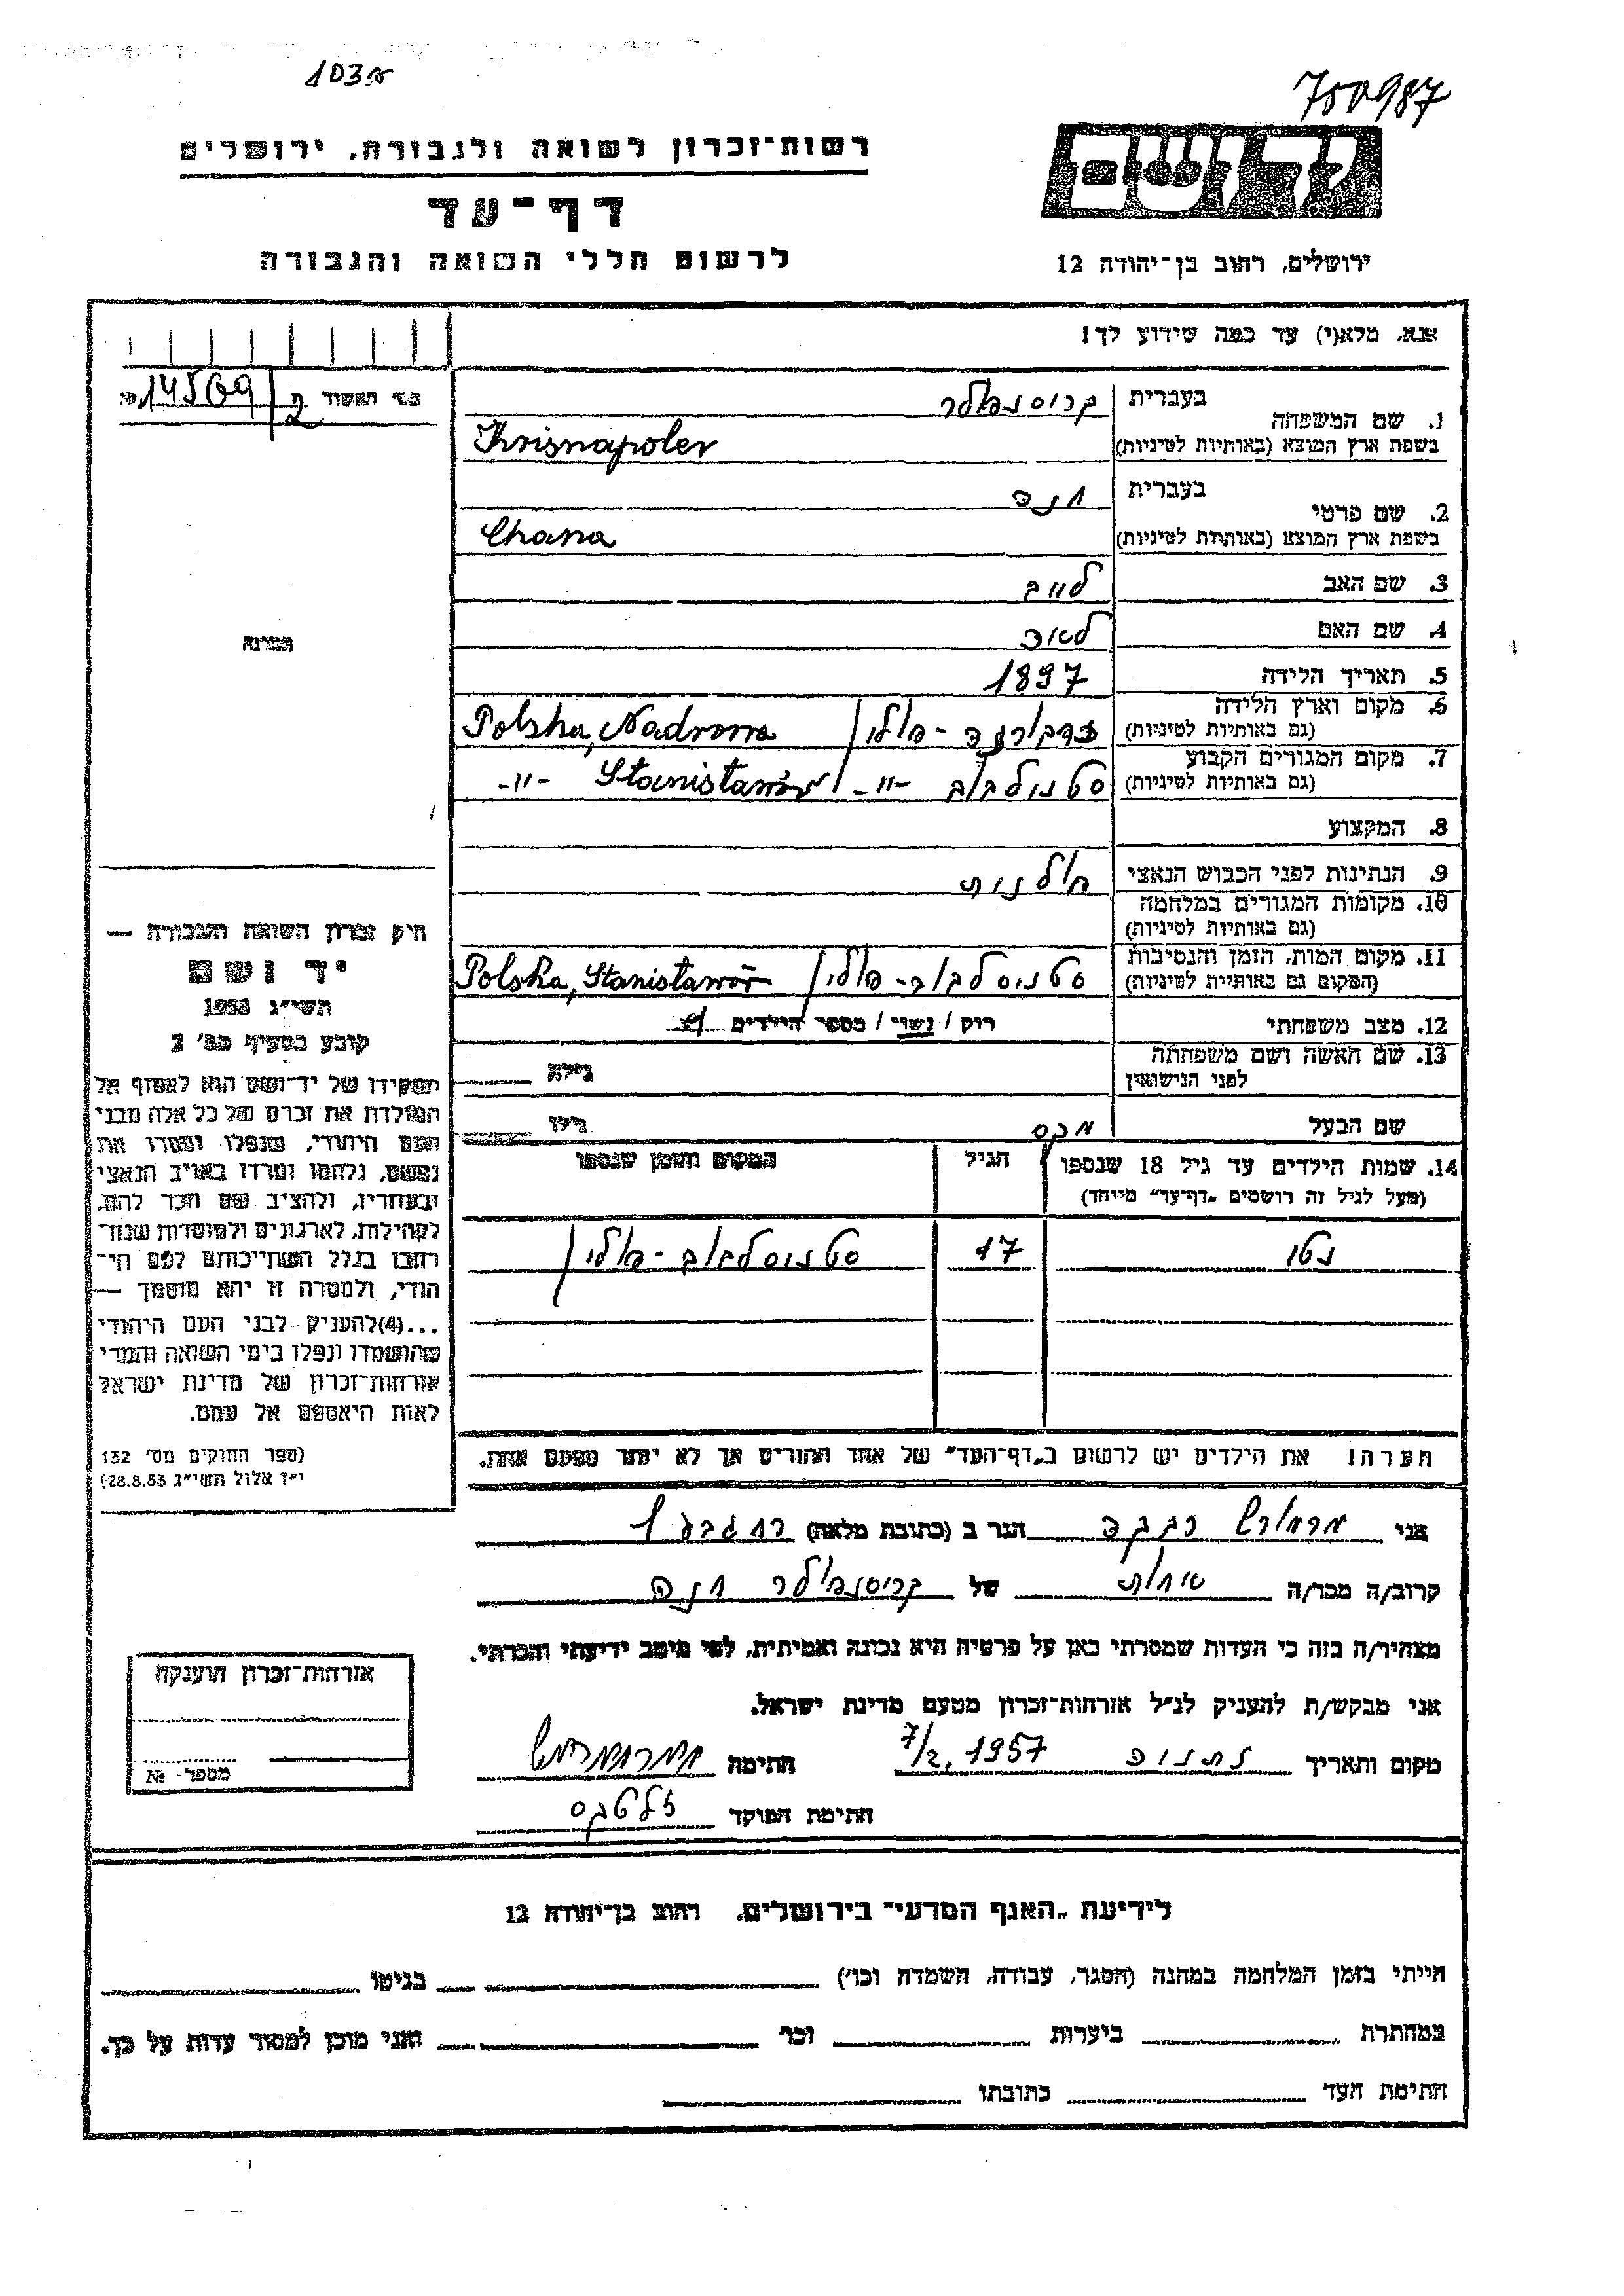 103א
700987
יד ושם
רשות־זכרון לשואה ולגבורה, ירושלים
דף־עד
לרשום חללי השואה והגבורה
ירושלים, רחוב בן־יהודה 12
אנא, מלא(י) עד כמה שידוע לך!
14569/2
1. שם המשפחה
בעברית קריסנפולר
בשפת ארץ המוצא (באותיות לטיניות) Krisnapoler
2. שם פרטי
בעברית חנה
בשפת ארץ המוצא (באותיות לטיניות) Chana
3. שם האב לייב
4. שם האם לאה
5. תאריך הלידה 1897
6. מקום וארץ הלידה
(גם באותיות לטיניות) נדבורנה - פולין Polska, Nadrorna
7. מקום המגורים הקבוע
(גם באותיות לטיניות) -"- Stanisławów -"-
8. המקצוע
9. הנתינות לפני הכבוש הנאצי פולנית
10. מקומות המגורים במלחמה
(גם באותיות לטיניות)
11. מקום המות, הזמן והנסיבות
(המקום גם באותיות לטיניות) סטניסלבוב - פולין Polska, Stanisławów
12. מצב משפחתי רווק / נשוי / מספר הילדים
13. שם האשה ושם משפחתה
לפני הנישואין גילה
שם הבעל מכס גילו
14. שמות הילדים עד גיל 18 שנספו
(מעל לגיל זה רושמים „דף־עד" מיוחד)
הגיל
המקום והזמן שנספו
נטי 17 סטניסלבוב - פולין
הערה: את הילדים יש לרשום ב„דף־העד" של אחד ההורים אך לא יותר מפעם אחת.
תמונה
חוק זכרון השואה והגבורה —
יד ושם
תשי"ג 1953
קובע בסעיף מס' 2
תפקידו של יד־ושם הוא לאסוף אל
המולדת את זכרם של כל אלה מבני
העם היהודי, שנפלו ומסרו את
נפשם, נלחמו ומרדו באויב הנאצי
ובעוזריו, ולהציב שם וזכר להם,
לקהילות, לארגונים ולמוסדות שנח־
רבו בגלל השתייכותם לעם הי־
הודי, ולמטרה זו יהא מוסמך —
...(4) להעניק לבני העם היהודי
שהושמדו ונפלו בימי השואה והמרי
אזרחות־זכרון של מדינת ישראל
לאות היאספם אל עמם.
(ספר החוקים מס' 132
י"ז אלול תשי"ג 28.8.53)
אני רבקה הגר ב (כתובת מלאה)
קרוב/ה מכר/ה אחות של קריסנפולר חנה
מצהיר/ה בזה כי העדות שמסרתי כאן על פרטיה היא נכונה ואמיתית, לפי מיטב ידיעתי והכרתי.
אני מבקש/ת להעניק לנ"ל אזרחות־זכרון מטעם מדינת ישראל.
מקום ותאריך נתניה 7/2.1957 חתימה
חתימת הפוקד
אזרחות־זכרון הוענקה
מספר - №
לידיעת „האגף המדעי" בירושלים, רחוב בן־יהודה 12
הייתי בזמן המלחמה במחנה (הסגר, עבודה, השמדה וכו') בגיטו
במחתרת ביערות וכו' ואני מוכן למסור עדות על כך.
חתימת העד כתובתו